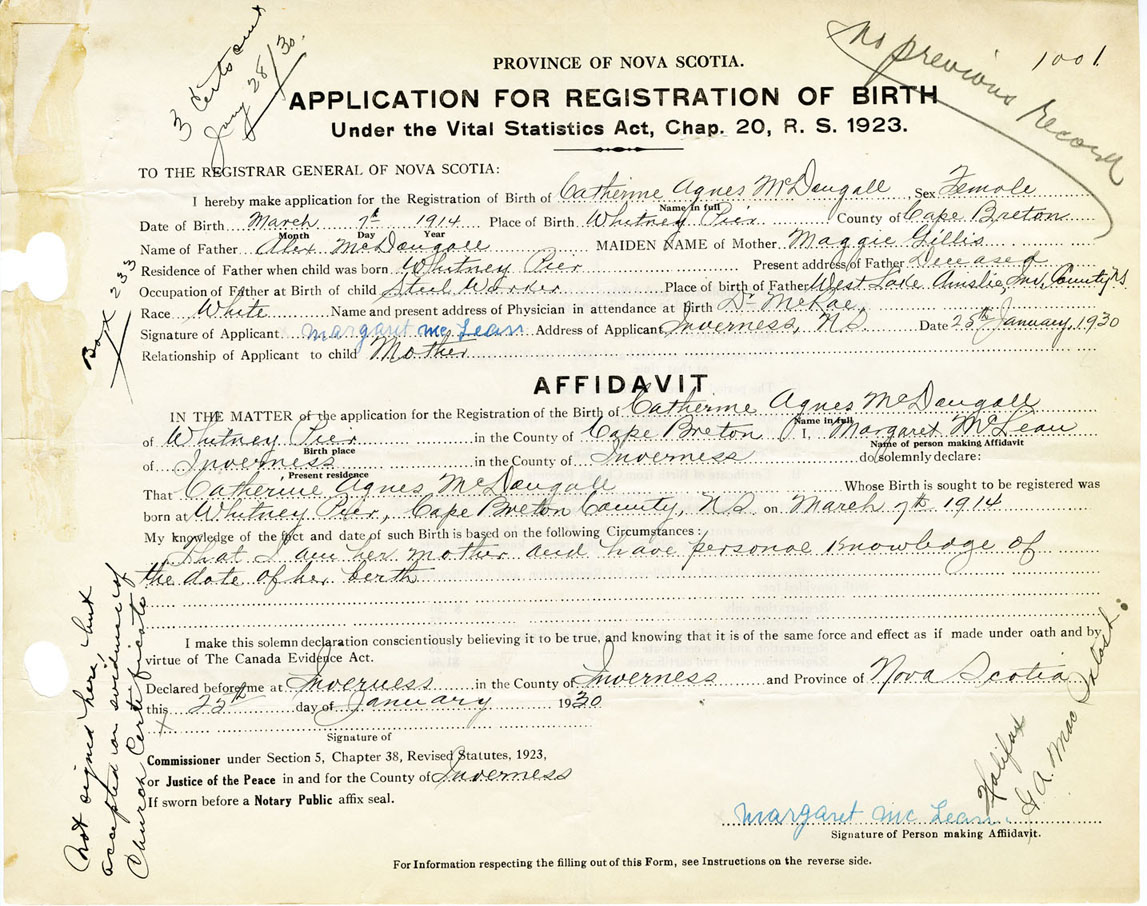 3 Certs sent
Jany 28/30.
No previous Record
1001
PROVINCE OF NOVA SCOTIA.
APPLICATION FOR REGISTRATION OF BIRTH
Under the Vital Statistics Act, Chap. 20, R. S. 1923.
TO THE REGISTRAR GENERAL OF NOVA SCOTIA:
I hereby make application for the Registration of Birth of Catherine Agnes McDougall Sex Female
Name in full
Date of Birth March 7th 1914 Place of Birth Whitney Pier County of Cape Breton
Month Day Year
Name of Father Alex McDougall MAIDEN NAME of Mother Maggie Gillis
Residence of Father when child was born Whitney Pier Present address of Father Deceased
Occupation of Father at Birth of child Steel Worker Place of birth of Father West Lake Ainslie, Inv. County N.S.
Race White Name and present address of Physician in attendance at Birth Dr McRae
Signature of Applicant Margaret Mc Lean Address of Applicant Inverness, N.S. Date 25th January 1930
Relationship of Applicant to child Mother
Box 233
AFFIDAVIT
IN THE MATTER of the application for the Registration of the Birth of Catherine Agnes McDougall
Name in full
of Whitney Pier in the County of Cape Breton I, Margaret McLean
Birth place Name of person making Affidavit
of Inverness in the County of Inverness do solemnly declare:
Present residence
That Catherine Agnes McDougall Whose Birth is sought to be registered was
born at Whitney Pier, Cape Breton County, N.S. on March 7th 1914
My knowledge of the fact and date of such Birth is based on the following Circumstances:
That I am her mother and have personal knowledge of
the date of her berth
I make this solemn declaration conscientiously believing it to be true, and knowing that it is of the same force and effect as if made under oath and by
virtue of The Canada Evidence Act.
Declared before me at Inverness in the County of Inverness and Province of Nova Scotia
this 25th day of January 1930
X
Signature of
Commissioner under Section 5, Chapter 38, Revised Statutes, 1923,
or Justice of the Peace in and for the County of Inverness
If sworn before a Notary Public affix seal.
Not signed here, but
accepted on evidence of
Church Certificate
Halifax
A. MacIntosh.
Margaret Mc Lean.
Signature of Person making Affidavit.
For Information respecting the filling out of this Form, see Instructions on the reverse side.